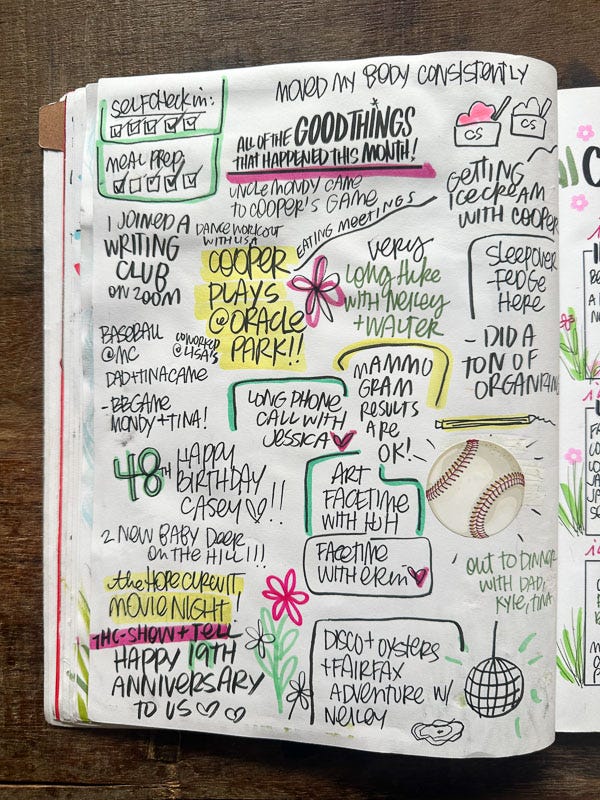 MOVED MY BODY CONSISTENTLY
SELFCHECKIN:
MEAL PREP
ALL OF THE GOOD THINGS
THAT HAPPENED THIS MONTH!
CS
CS
UNCLE MONDY CAME
TO COOPER'S GAME
GETTING
ICECREAM
WITH COOPER
I JOINED A
WRITING
CLUB
ON ZOOM
DANCE WORKOUT
WITH LISA
EATING MEETINGS
COOPER
PLAYS
@ORACLE
PARK!!
VERY
LONG HIKE
WITH NEILEY
+ WALTER
SLEEPOVER
-FEDGE
HERE
- DID A
TON OF
ORGANIZING
BASEBALL
@MC
COWORKED
@LISA'S
DAD+TINA CAME
- BBGAME
MONDY + TINA!
MAMMO
GRAM
RESULTS
ARE
OK!
LONG PHONE
CALL WITH
JESSICA
48TH HAPPY
BIRTHDAY
CASEY !!
ART
FACETIME
WITH HJH
2 NEW BABY DEER
ON THE HILL!!!
FACETIME
WITH ERIN
OUT TO DINNER
WITH DAD,
KYLE, TINA
the HOPE CIRCUIT
MOVIE NIGHT!
THC-SHOW + TELL
HAPPY 19TH
ANNIVERSARY
TO US
DISCO + OYSTERS
+ FAIRFAX
ADVENTURE W/
NEILEY